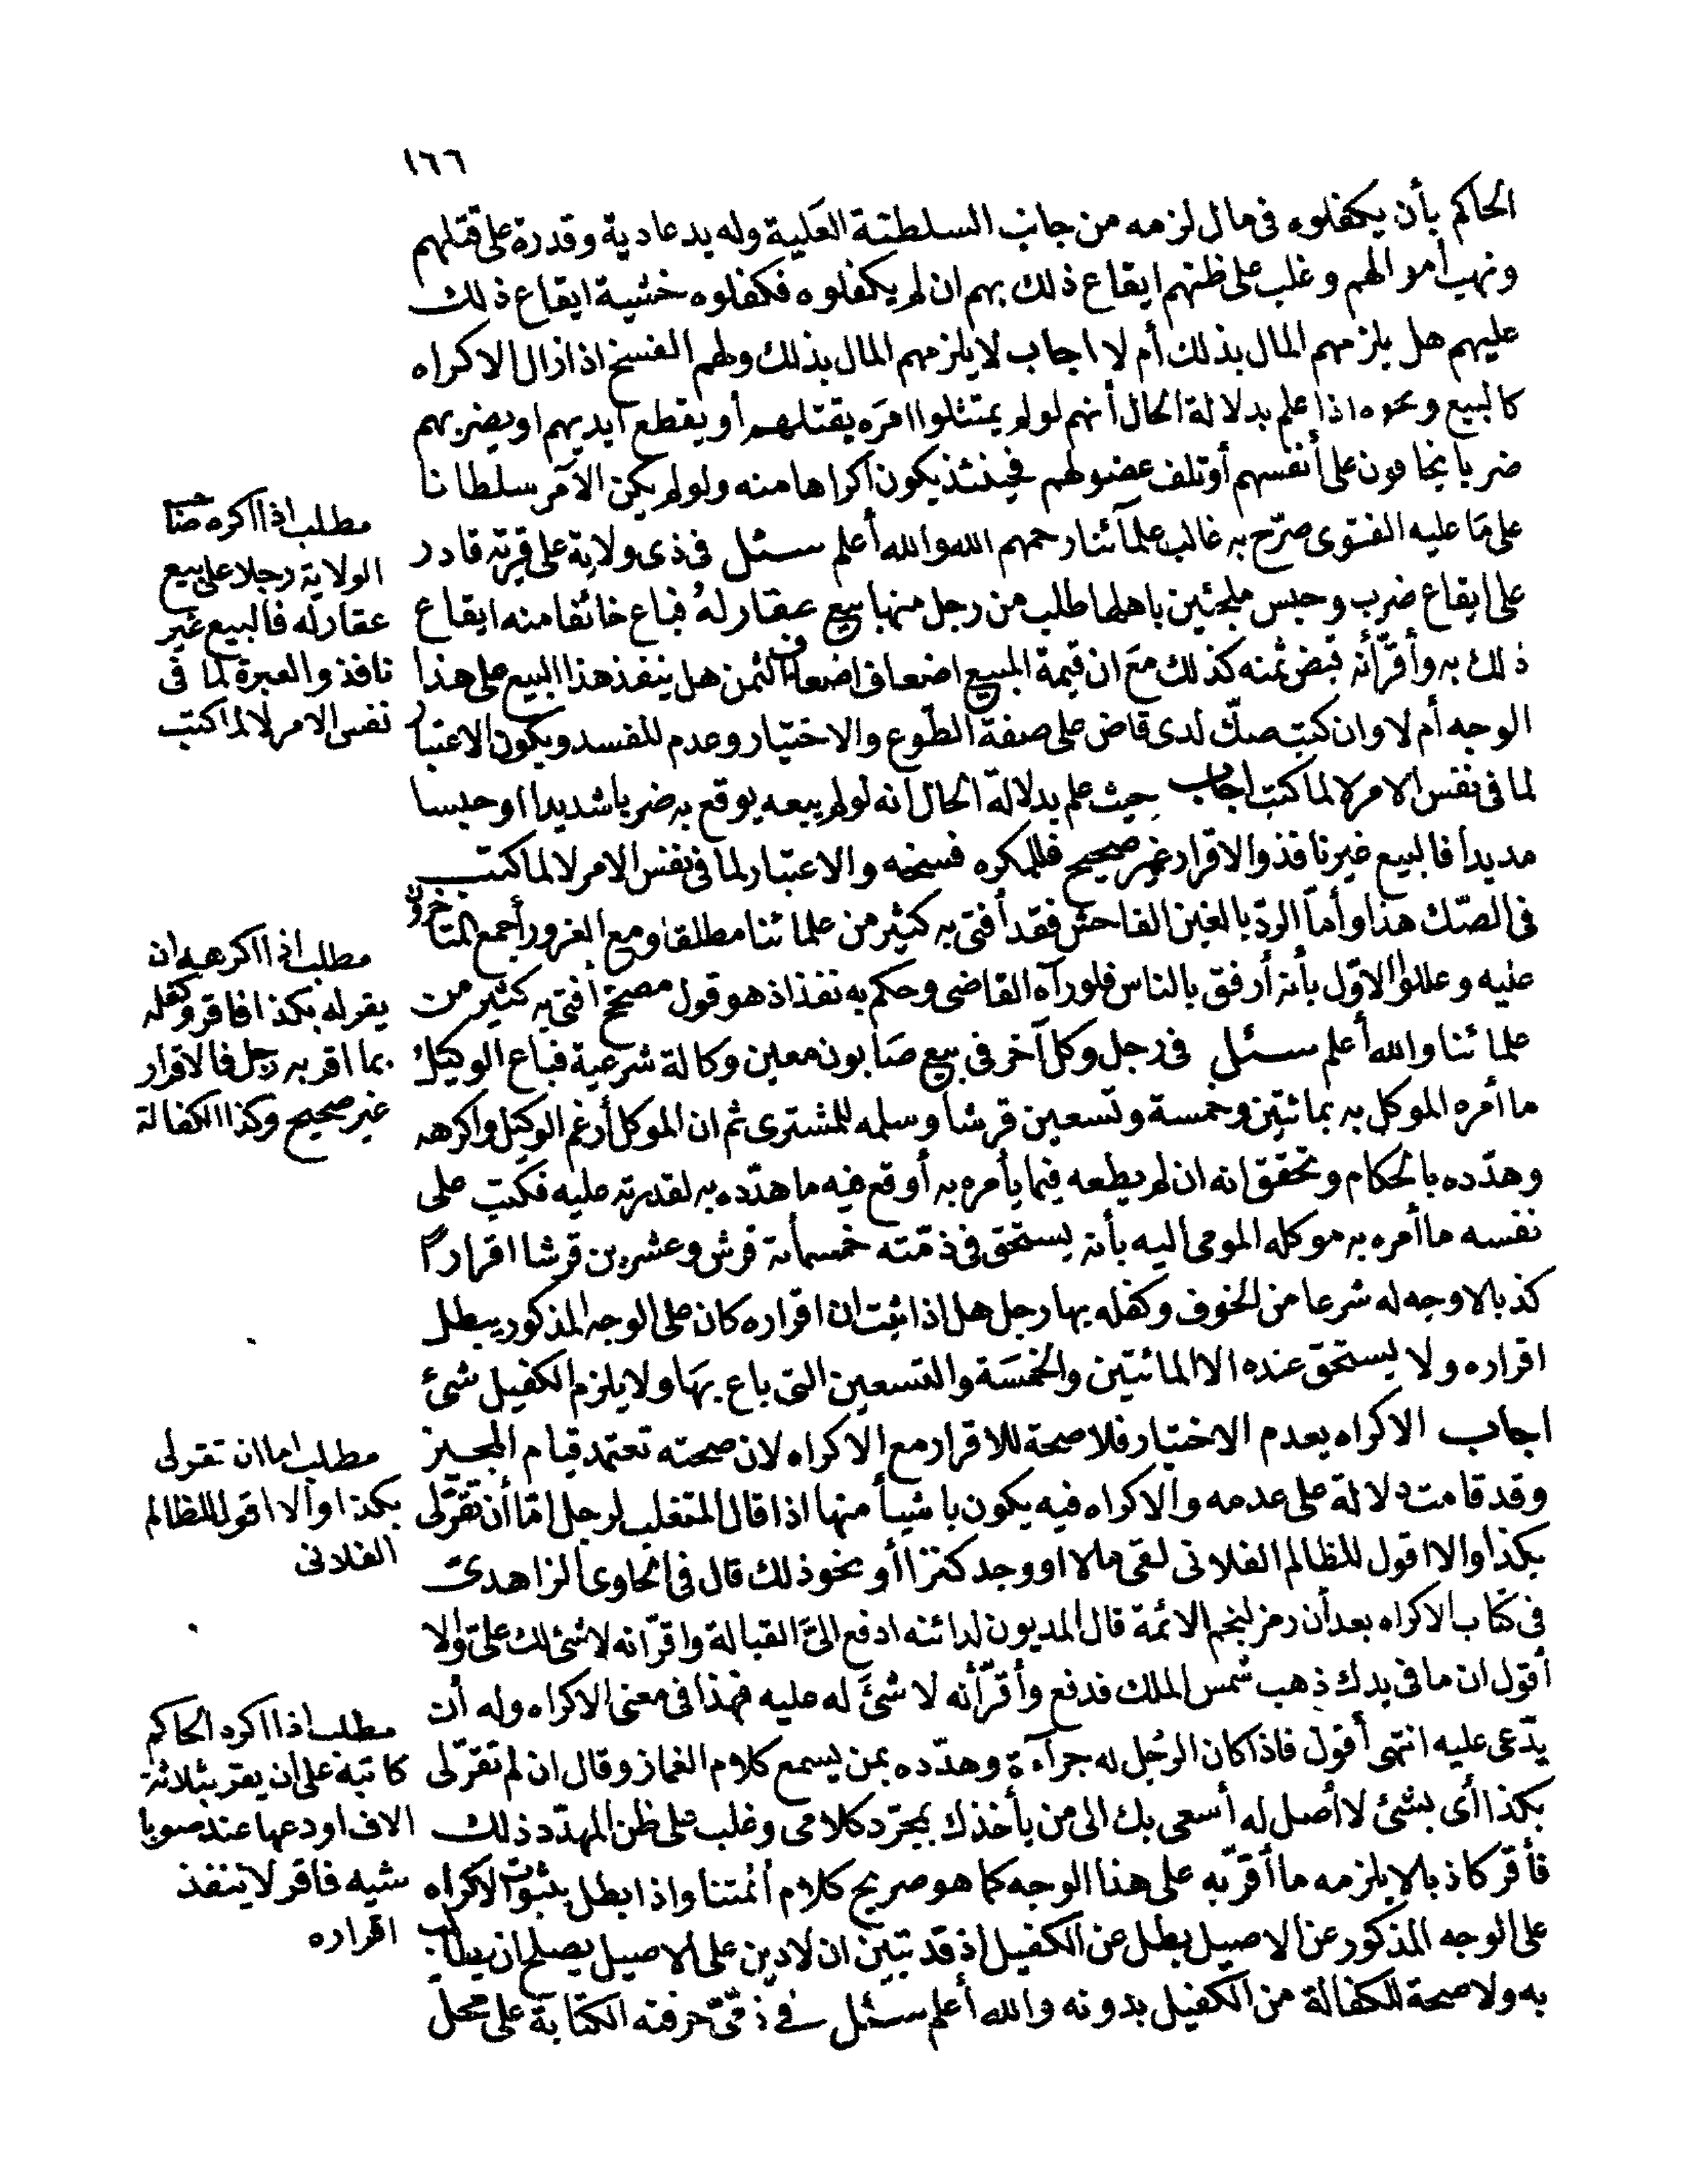 ١٦٦
الحاكم بأن يكفلوه فى مال لزمه من جانب السلطنة العَلية وله يد عادية وقدرة على قتلهم
ونهب أموالهم وغلب على ظنهم ايقاع ذلك بهم ان لم يكفلوه فكفلوه خشية ايقاع ذلك
عليهم هل يلزمهم المال بذلك أم لا اجاب لا يلزمهم المال بذلك ولهم الفسخ اذا زال الاكراه
كالبيع ونحوه اذا علم بدلالة الحال أنهم لو لم يمتثلوا امَره يقتلهم أو يقطع ايديهم او يضربهم
ضربا يخافون على أنفسهم أو تلف عضولهم فحينئذ يكون اكراها منه ولو لم يكن الآمر سلطانا
على مَا عليه الفتوى صرّح به غالب علمآئنا رحمهم الله والله أعلم سئل فى ذى ولاية على قرية قادر
على ايقاع ضرب وحبس ملجئين باهلها طلب من رجل منها بيع عقار لهُ فباع خائفا منه ايقاع
ذلك به وأقرّ أنه قبض ثمنه كذلك معَ ان قيمة المبيع اضعاف اضعاف الثمن هل ينفذ هذا البيع على هذا
الوجه أم لا وان كتب صكّ لدى قاض على صفة الطّوع والاختيار وعدم المفسد ويكون الاعتبار
لما فى نفس الامر لا لما كتب اجاب حيث علم بدلالة الحال انه لو لم يبعه يوقع به ضربا شديدا او حبسا
مديدا فالبيع غير نافذ والاقرار غير صحيح فللمكره فسخه والاعتبار لما فى نفس الامر لا لما كتب
فى الصّك هذا وأمّا الردّ بالغبن الفاحش فقد أفتى به كثير من علمائنا مطلقا ومع الغرور أجمع المتأخرون
عليه وعللوا الاوّل بأنه أرفق بالناس فلو رآه القاضى وحكم به نفذ اذ هو قول مصحّح افتى به كثير من
علمائنا والله أعلم سئل فى رجل وكل آخر فى بيع صَابون معين وكالة شرعية فباع الوكيل
ما أمره الموكل به بمائتين وخمسة وتسعين قرشا وسلمه للمشترى ثم ان الموكل أرغم الوكيل واكرهه
وهدّده بالحكام وتحقق انه ان لم يطعه فيما يأمره به أوقع فيه ما هدّده به لقدرته عليه فكتب على
نفسه ما أمره به موكله المومى اليه بأنه يستحق فى ذمّته خمسمأئة قرش وعشرين قرشا اقرارًا
كذبا لا وجه له شرعا من الخوف وكفله بها رجل هل اذا ثبت ان اقراره كان على الوجه المذكور يبطل
اقراره ولا يستحق عنده الا المائتين والخمسَة والتسعين التى باع بهَا ولا يلزم الكفيل شئ
اجاب الاكراه يعدم الاختيار فلا صحة للاقرار مع الاكراه لان صحته تعتمد قيام المجيز
وقد قامت دلالة على عدمه والاكراه فيه يكون باشيأ منها اذا قال المتغلب لرجل امّا أن تقرّلى
بكذا والا اقول للظالم الفلانى لقى مالا او وجد كنزا أو نحو ذلك قال فى الحاوى الزاهدىّ
فى كتاب الاكراه بعد أن رمز لنجم الائمة قال المديون لدائنه ادفع الىّ القبالة واقرّ انه لا شئ لك علىّ والا
أقول ان ما فى يدك ذهب شمس الملك فدفع وأقرّ أنه لا شئَ له عليه فهذا فى معنى الاكراه وله أن
يدّعى عليه انتهى أقول فاذا كان الرّجل له جرآءة وهدّده بمن يسمع كلام الغماز وقال ان لم تقرّ لى
بكذا أى بشئ لا أصل له أسعى بك الى من يأخذك بمجرّد كلامى وغلب على ظن المهدّد ذلك
فأقر كاذبا لا يلزمه ما أقرّ به على هذا الوجه كما هو صريح كلام أئمتنا واذا بطل بثبوت الاكراه
على الوجه المذكور عن الاصيل بطل عن الكفيل اذ قد تبيّن ان لا دين على الاصيل يصلح ان يطالب
به ولا صحة للكفالة من الكفيل بدونه والله أعلم سئل فى ذمّىّ حرفته الكتابة على محل
مطلب اذا اكره صَاحب
الولاية رجلا على بيع
عقار له فالبيع غير
نافذ والعبرة لما فى
نفس الامر لا لما كتب
مطلب اذا اكرهه ان
يقر له بكذا فاقر وكفله
بما اقر به رجل فالاقرار
غير صحيح وكذا الكفالة
مطلب اما ان تقر لى
بكذا والا اقول للظالم
الفلانى
مطلب اذا اكره الحاكم
كاتبه على ان يقر بثلاثة
الاف اودعها عنده
شيه فاقر لا ينفذ
اقراره